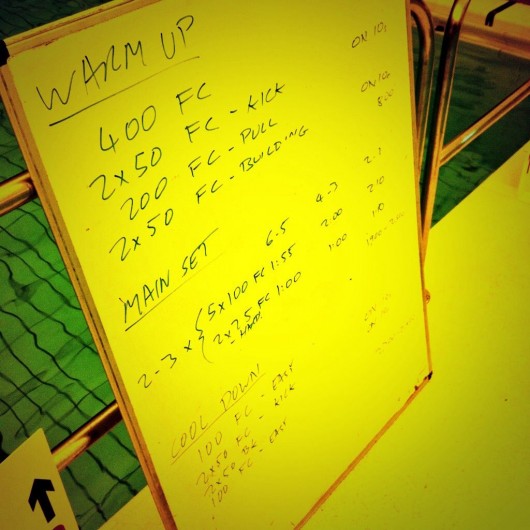 WARM UP
400 FC
2x50 FC - KICK ON 10,
200 FC - PULL
2x50 FC - BUILDING ON 10,
MAIN SET 6-5
2-3 x { 5x100 FC 1:55 2:00 2:10
2x25 FC 1:00 1:00
- HARD
COOL DOWN
100 FC - EASY
2x50 FC - KICK
2x50 BK
100 FC - EASY